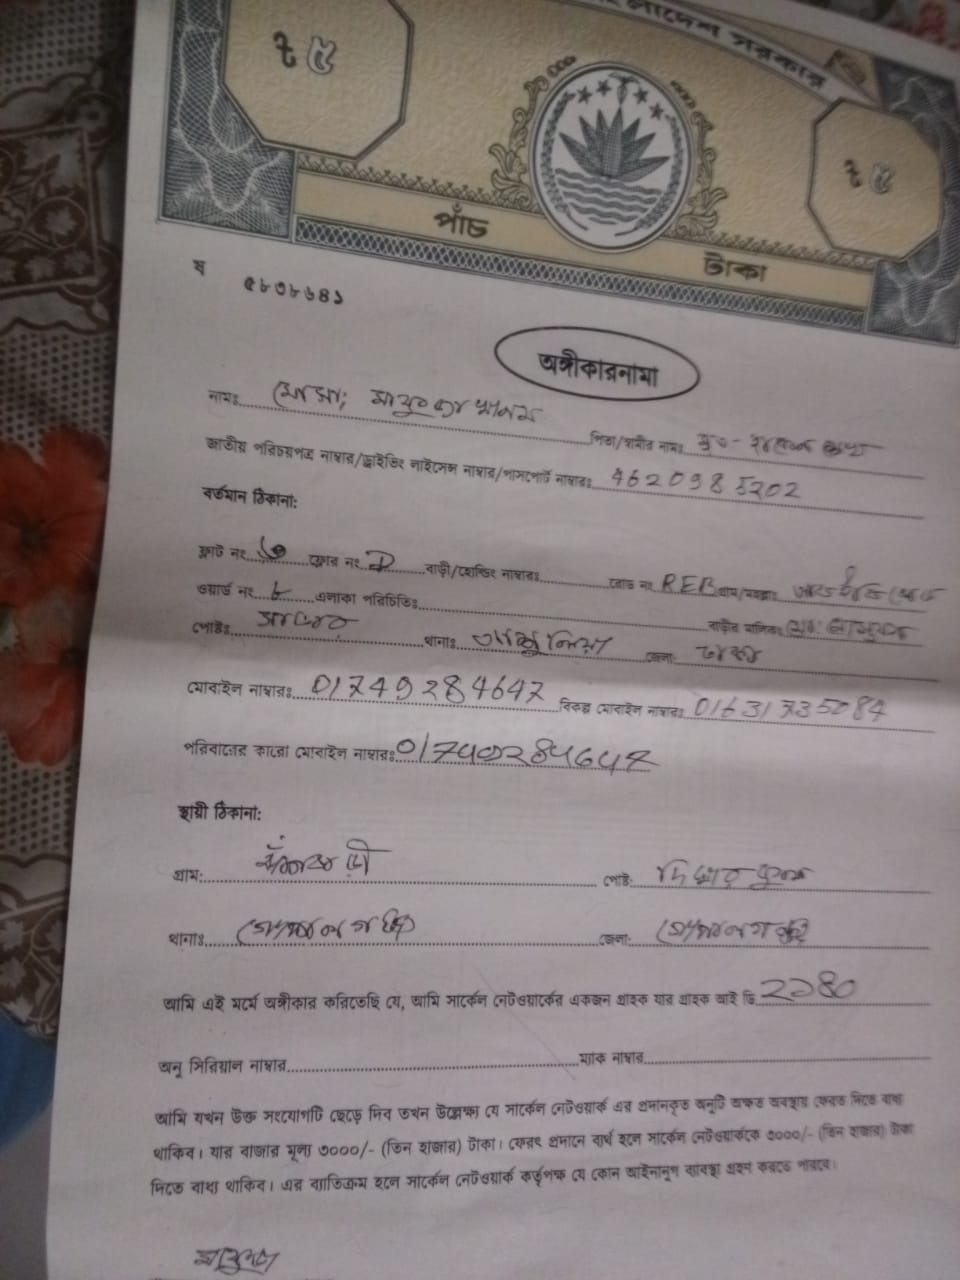 ৳ ৫
৳ ৫
পাঁচ টাকা
ষ ৫৮৩৮৬৪১
অঙ্গীকারনামা
নামঃ মোসা: পিতা/স্বামীর নামঃ মৃত -
জাতীয় পরিচয়পত্র নাম্বার/ড্রাইভিং লাইসেন্স নাম্বার/পাসপোর্ট নাম্বারঃ 4620985202
বর্তমান ঠিকানা:
ফ্লাট নং ফ্লোর নং বাড়ী/হোল্ডিং নাম্বারঃ রোড নং REB গ্রাম/মহল্লাঃ
ওয়ার্ড নং ৮ এলাকা পরিচিতিঃ বাড়ীর মালিকঃ মোঃ
পোষ্টঃ থানাঃ আশুলিয়া জেলাঃ ঢাকা
মোবাইল নাম্বারঃ 01749284647 বিকল্প মোবাইল নাম্বারঃ 01631735084
পরিবারের কারো মোবাইল নাম্বারঃ
স্থায়ী ঠিকানা:
গ্রাম: পোষ্ট:
থানাঃ গোপালগঞ্জ জেলা: গোপালগঞ্জ
আমি এই মর্মে অঙ্গীকার করিতেছি যে, আমি সার্কেল নেটওয়ার্কের একজন গ্রাহক যার গ্রাহক আই ডি ২১৪০
অনু সিরিয়াল নাম্বার ম্যাক নাম্বার
আমি যখন উক্ত সংযোগটি ছেড়ে দিব তখন উল্লেক্ষা যে সার্কেল নেটওয়ার্ক এর প্রদানকৃত অনুটি অক্ষত অবস্থায় ফেরত দিতে বাধ্য
থাকিব। যার বাজার মূল্য ৩০০০/- (তিন হাজার) টাকা। ফেরৎ প্রদানে ব্যর্থ হলে সার্কেল নেটওয়ার্ককে ৩০০০/- (তিন হাজার) টাকা
দিতে বাধ্য থাকিব। এর ব্যাতিক্রম হলে সার্কেল নেটওয়ার্ক কর্তৃপক্ষ যে কোন আইনানুগ ব্যবস্থা গ্রহণ করতে পারবে।